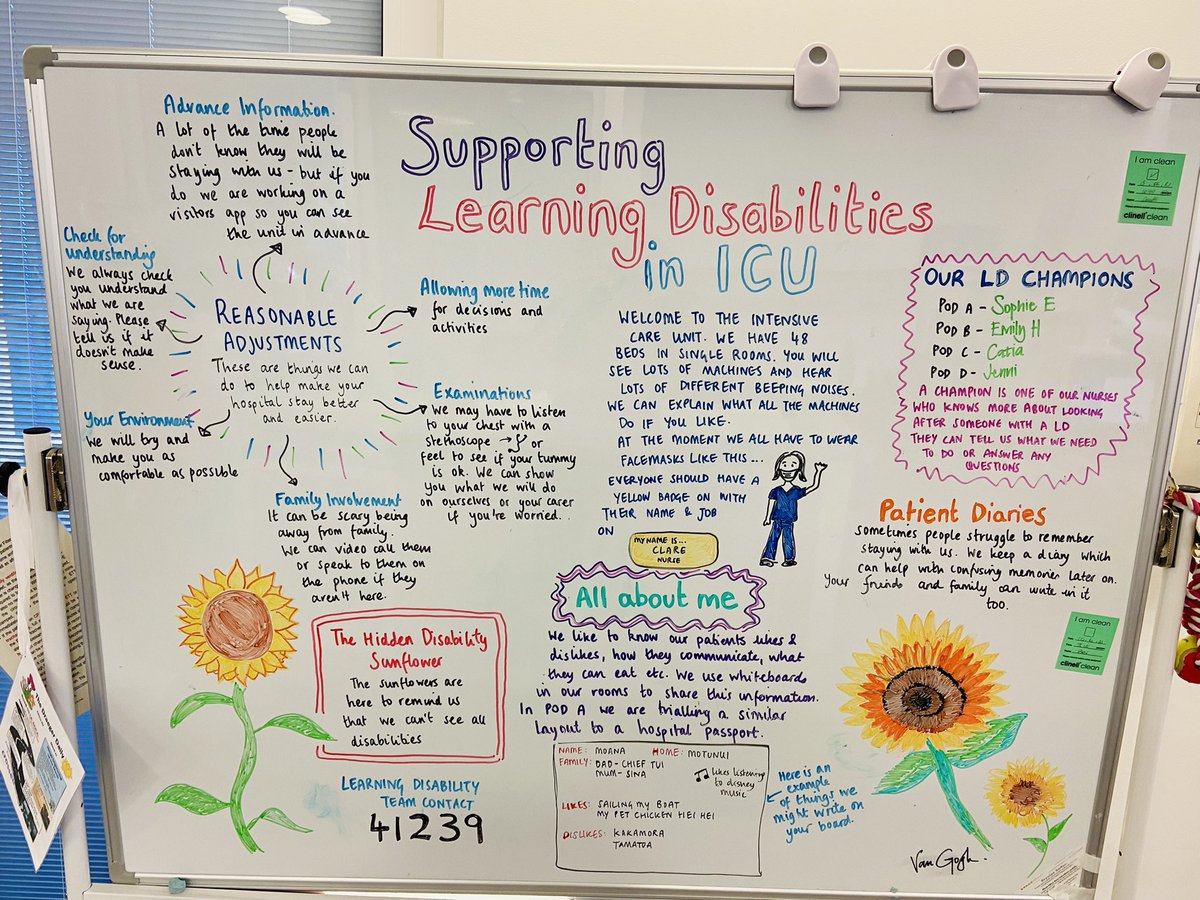 Supporting
Learning Disabilities
in ICU
Advance Information.
A lot of the time people
don't know they will be
staying with us - but if you
do we are working on a
visitors app so you can see
the unit in advance
Check for
understanding
We always check
you understand
what we are
saying. Please
tell us if it
doesn't make
sense.
REASONABLE
ADJUSTMENTS
These are things we can
do to help make your
hospital stay better
and easier.
Allowing more time
for decisions and
activities
Examinations
We may have to listen
to your chest with a
stethoscope → or
feel to see if your tummy
is ok. We can show
you what we will do
on ourselves or your carer
if you're worried.
Your Environment
We will try and
make you as
comfortable as possible
Family Involvement
It can be scary being
away from family.
We can video call them
or speak to them on
the phone if they
aren't here.
The Hidden Disability
Sunflower
The sunflowers are
here to remind us
that we can't see all
disabilities
LEARNING DISABILITY
TEAM CONTACT
41239
WELCOME TO THE INTENSIVE
CARE UNIT. WE HAVE 48
BEDS IN SINGLE ROOMS. YOU WILL
SEE LOTS OF MACHINES AND HEAR
LOTS OF DIFFERENT BEEPING NOISES.
WE CAN EXPLAIN WHAT ALL THE MACHINES
DO IF YOU LIKE.
AT THE MOMENT WE ALL HAVE TO WEAR
FACEMASKS LIKE THIS...
EVERYONE SHOULD HAVE A
YELLOW BADGE ON WITH
THEIR NAME & JOB
ON
MY NAME IS...
CLARE
NURSE
All about me
We like to know our patients likes &
dislikes, how they communicate, what
they can eat etc. We use whiteboards
in our rooms to share this information.
In POD A we are trialling a similar
layout to a hospital passport.
NAME: MOANA HOME: MOTUNUI
FAMILY: DAD - CHIEF TUI
MUM - SINA
likes listening
to disney
music
LIKES: SAILING MY BOAT
MY PET CHICKEN HEI HEI
DISLIKES: KAKAMORA
TAMATOA
Here is an
example
of things we
might write on
your board.
OUR LD CHAMPIONS
POD A - Sophie E
POD B - Emily H
POD C - Catia
POD D - Jenni
A CHAMPION IS ONE OF OUR NURSES
WHO KNOWS MORE ABOUT LOOKING
AFTER SOMEONE WITH A LD
THEY CAN TELL US WHAT WE NEED
TO DO OR ANSWER ANY
QUESTIONS
Patient Diaries
Sometimes people struggle to remember
staying with us. We keep a diary which
can help with confusing memories later on.
Your friends and family can write in it
too.
Van Gogh.
I am clean
clinell clean
I am clean
clinell clean